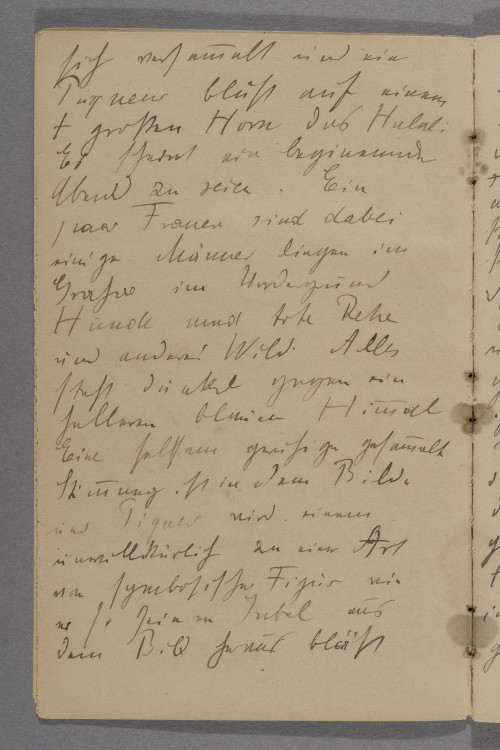 sich versam̄elt und ein
Piqueur bläst auf einem
+ großen Horn das Halali
Es scheint ein beginnender
Abend zu sein. Ein
paar Frauen sind dabei
einige Männer liegen im
Grase im Vordergrund
Hunde und tote Rehe
und anderes Wild. Alles
steht dunkel gegen ein
helleren blauen Him̄el
Eine seltsam ruhige gesam̄elte
Stim̄ung ist in dem Bilde
und Piqueur wird einem
unwillkürlich zu einer Art
von symbolischer Figur wie
er so seinen Jubel aus
dem Bild heraus bläst